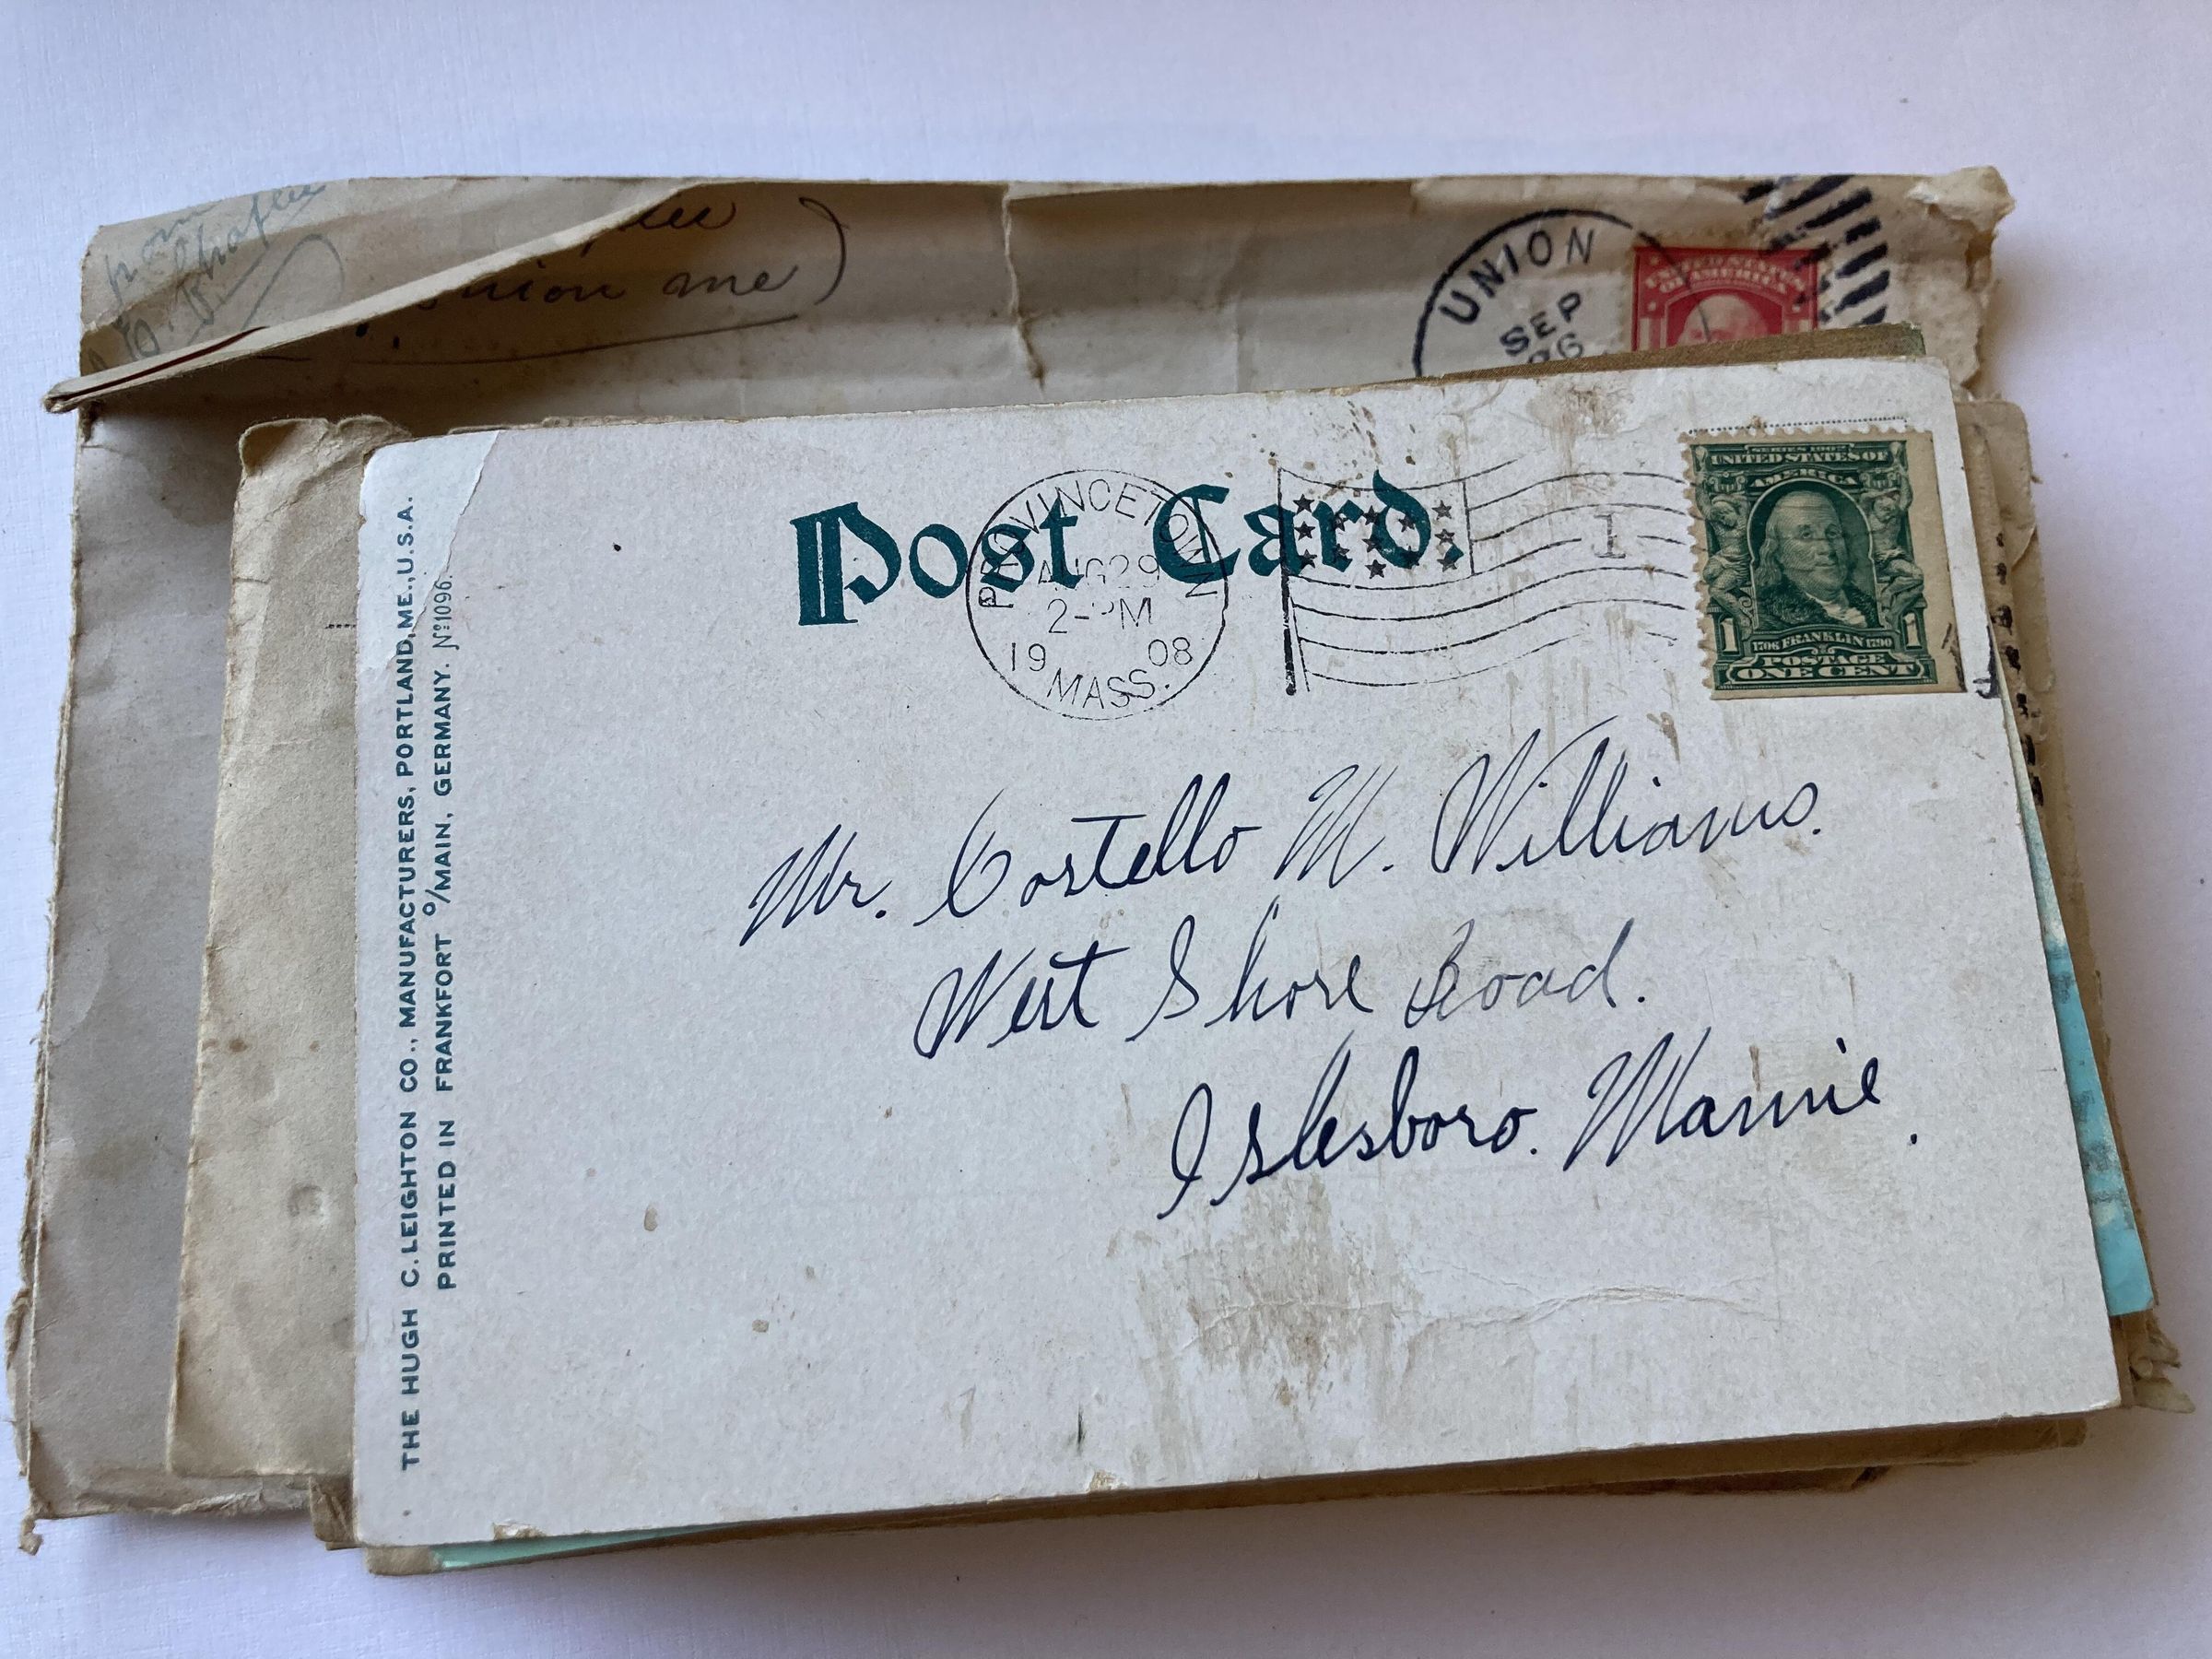 UNION
SEP
UNITED STATES
OF AMERICA
Union me)
Post Card.
PROVINCETOWN
AUG 29
2-PM
19 08
MASS.
1
SERIES 1902
UNITED STATES OF
AMERICA
1706 FRANKLIN 1790
1 POSTAGE 1
ONE CENT
Mr. Costello M. Williams.
West Shore Road.
Islesboro. Maine.
THE HUGH C. LEIGHTON CO., MANUFACTURERS, PORTLAND, ME., U.S.A.
PRINTED IN FRANKFORT O/MAIN, GERMANY. No 1096.